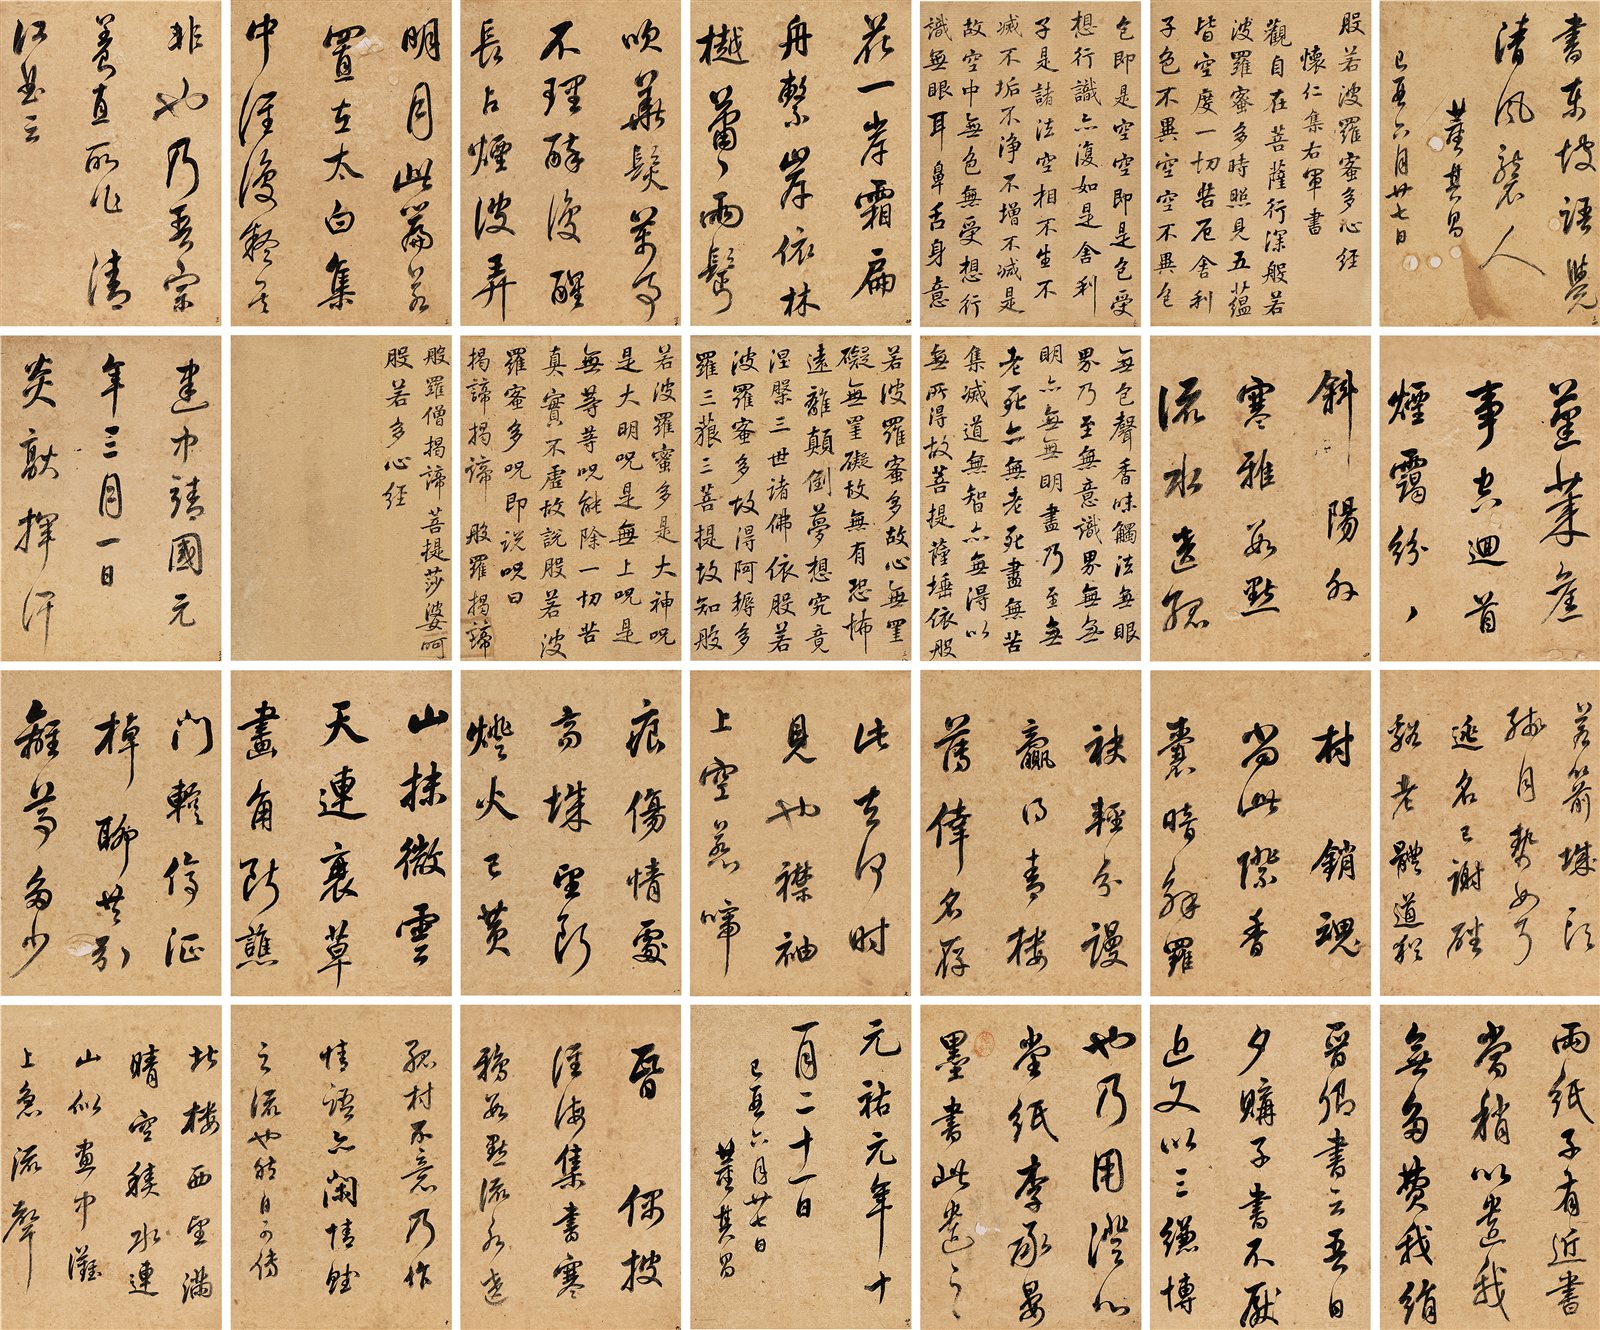 書東坡語覺
清風襲人
董其昌
己亥六月廿七日
般若波羅蜜多心經
懷仁集右軍書
觀自在菩薩行深般若
波羅蜜多時照見五蘊
皆空度一切苦厄舍利
子色不異空空不異色
色即是空空即是色受
想行識亦復如是舍利
子是諸法空相不生不
滅不垢不淨不增不減是
故空中無色無受想行
識無眼耳鼻舌身意
花一岸霜扁
舟繫岸依林
樾蕭〻兩鬢
吹華髮萬事
不理醉復醒
長占煙波弄
明月此篇若
置在太白集
中誰復疑其
非也乃吾宗
養直所作清
江曲云
蓬萊舊
事空迴首
煙靄紛〻
斜陽外
寒鴉數點
流水遶孤
無色聲香味觸法無眼
界乃至無意識界無無
明亦無無明盡乃至無
老死亦無老死盡無苦
集滅道無智亦無得以
無所得故菩提薩埵依般
若波羅蜜多故心無罣
礙無罣礙故無有恐怖
遠離顛倒夢想究竟
涅槃三世諸佛依般若
波羅蜜多故得阿耨多
羅三藐三菩提故知般
若波羅蜜多是大神呪
是大明呪是無上呪是
無等等呪能除一切苦
真實不虛故說般若波
羅蜜多呪即說呪曰
揭諦揭諦 般羅揭諦
般羅僧揭諦菩提莎婆呵
般若多心經
建中靖國元
年三月一日
炎歊揮汗
若箭城頭
殘月勢如弓
逃名已謝磻
谿老體道猶
村銷魂
當此際香
囊暗解羅
袂輕分謾
贏得青樓
薄倖名存
此去何時
見也襟袖
上空惹啼
痕傷情處
高城望斷
燈火已黄
山抹微雲
天連衰草
畫角斷譙
門輕停征
棹聊共引
離尊多少
兩紙子有近書
當稍以遺我
無多費我絹
晉卿書云吾日
夕購子書不厭
近又以三縑博
也乃用澄心
堂紙李承晏
墨書此遺之
元祐元年十
一月二十一日
己亥六月廿七日
董其昌
晉
淮海集書寒
鴉數點流水遶
孤村不意乃作
情語亦閑情賦
之流也
北樓西望滿
晴空積水連
山似畫中灘
上急流聲